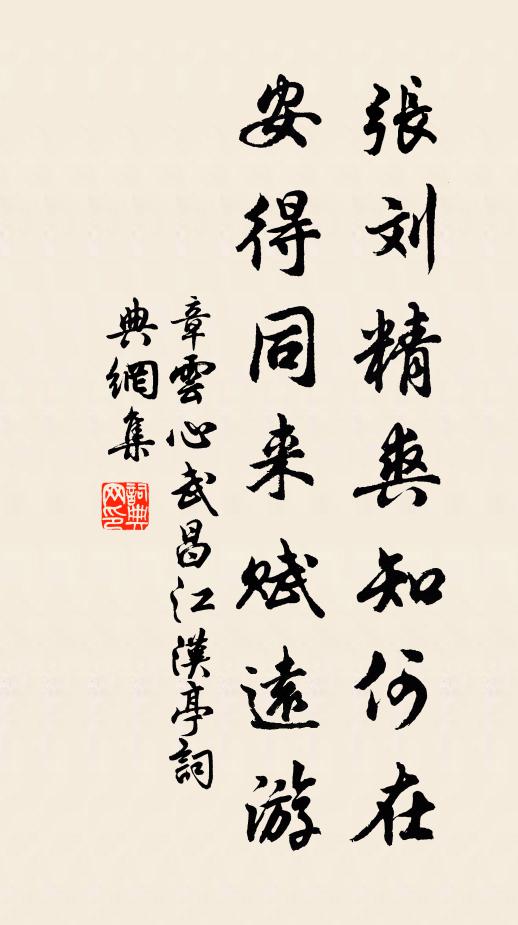 張刘精爽知何在
安得同来赋遠游
章雲心武昌江漢亭詞
典網集
詞典網印